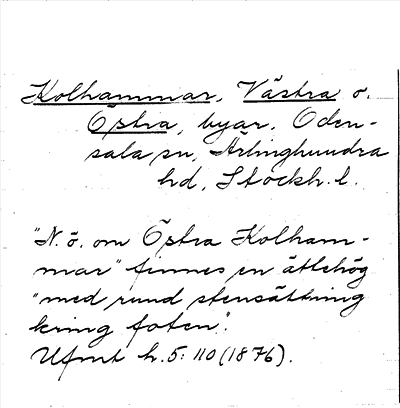 Kolhammar, Västra o.
Östra, byar. Oden-
sala sn, Ärlinghundra
hd, Stockh. l.
"N. ö. om Östra Kolham-
mar" finnes en ättehög
"med rund stensättning
kring foten".
Ufmt h. 5: 110 (1876).